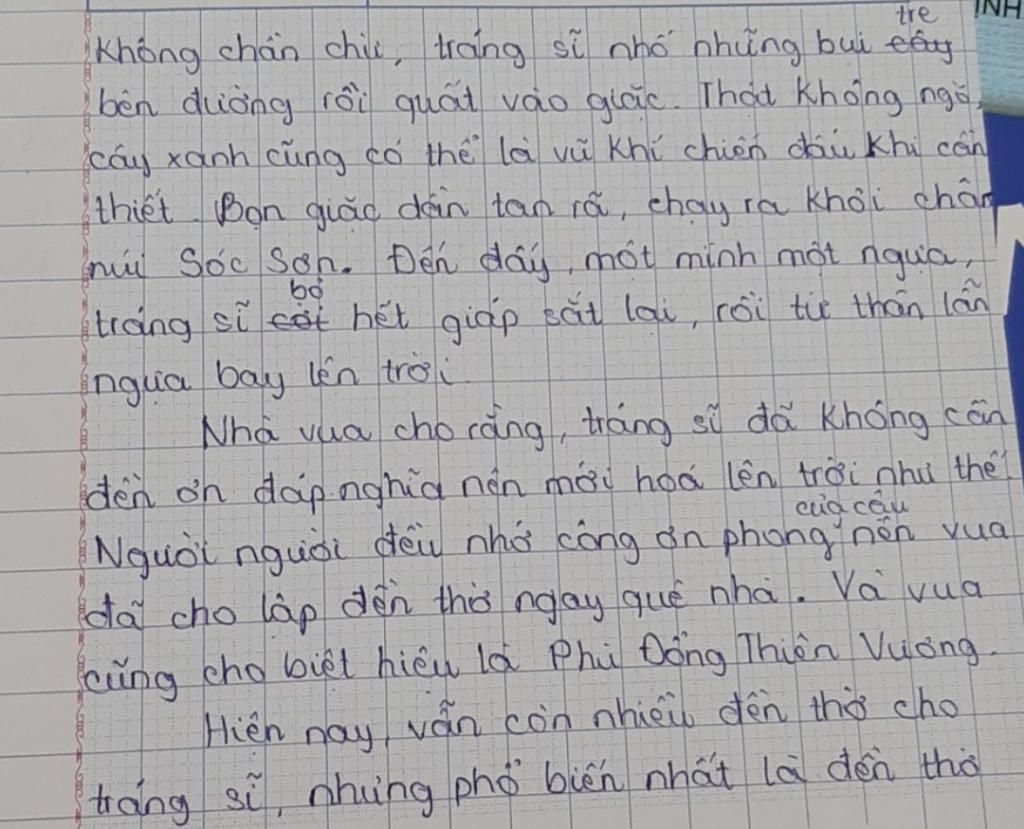 INH
Không chần chừ, tráng sĩ nhổ những bụi cây tre
bên đường rồi quất vào giặc. Thật không ngờ,
cây xanh cũng có thể là vũ khí chiến đấu khi cần
thiết. Bọn giặc dần tan rã, chạy ra khỏi chân
núi Sóc Sơn. Đến đây, một mình một ngựa,
tráng sĩ cởi bỏ hết giáp sắt lại, rồi từ thân lẫn
ngựa bay lên trời.
Nhà vua cho rằng, tráng sĩ đã không cần
đền ơn đáp nghĩa nên mới hoá lên trời như thế.
Người người đều nhớ công ơn phong của cậu nên vua
đã cho lập đền thờ ngay quê nhà. Và vua
cũng cho biệt hiệu là Phù Đổng Thiên Vương.
Hiện nay, vẫn còn nhiều đền thờ cho
tráng sĩ, nhưng phổ biến nhất là đền thờ